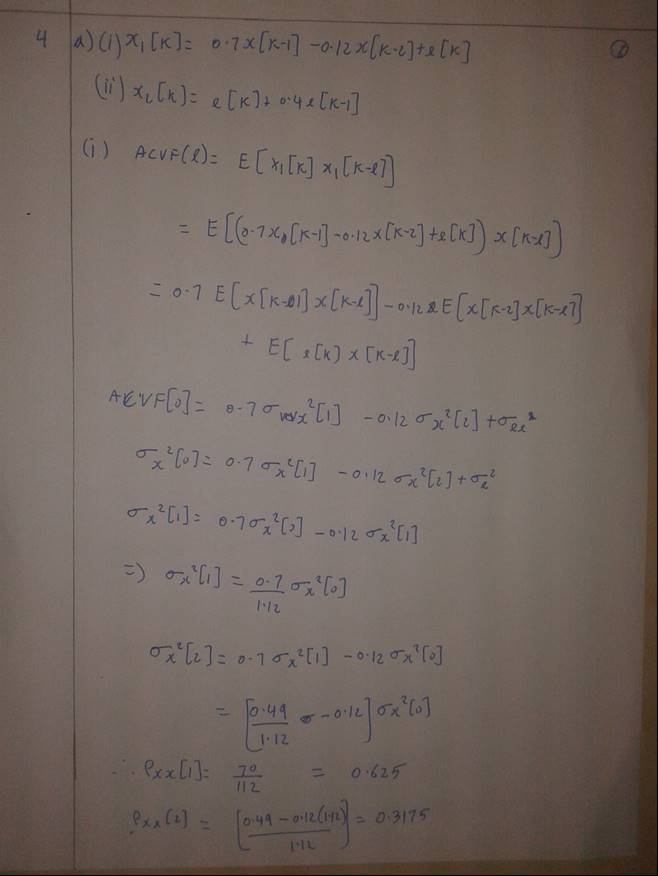 4 a) (i) x₁[k] = 0.7x[k-1] - 0.12x[k-2] + e[k]
(ii) x₂[k] = e[k] + 0.4e[k-1]
(i) ACVF(l) = E[x₁[k] x₁[k-l]]
= E[(0.7x[k-1] - 0.12x[k-2] + e[k]) x[k-l])
= 0.7 E[x[k-1] x[k-l]] - 0.12 E[x[k-2] x[k-l]]
+ E[e[k) x[k-l]]
ACVF[0] = 0.7 σx²[1] - 0.12 σx²[2] + σee²
σx²[0] = 0.7 σx²[1] - 0.12 σx²[2] + σe²
σx²[1] = 0.7σx²[0] - 0.12 σx²[1]
=) σx²[1] = 0.7/1.12 σx²[0]
σx²[2] = 0.7 σx²[1] - 0.12 σx²[0]
= [0.49/1.12 - 0.12] σx²[0]
∴ ρxx[1] = 70/112 = 0.625
ρxx[2] = [0.49 - 0.12(1.12)/1.12] = 0.3175